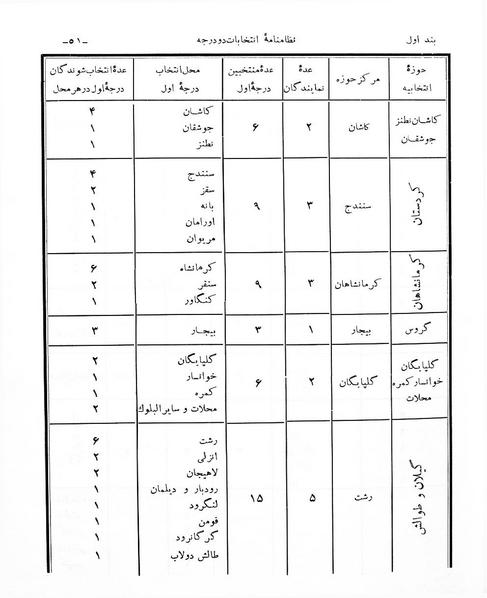 بند اول نظامنامهٔ انتخابات دو درجه ـ۵۱ـ
حوزهٔ انتخابیه مرکز حوزه عدهٔ نمایندگان عدهٔ منتخبین درجهٔ اول محل انتخاب درجهٔ اول عدهٔ انتخاب شوندگان درجهٔ اول در هر محل
کاشان نطنز جوشقان کاشان ۲ ۶ کاشان ۴
جوشقان ۱
نطنز ۱
کردستان سنندج ۳ ۹ سنندج ۴
سقز ۲
بانه ۱
اورامان ۱
مریوان ۱
کرمانشاهان کرمانشاهان ۳ ۹ کرمانشاه ۶
سنقر ۲
کنگاور ۱
گروس بیجار ۱ ۳ بیجار ۳
گلپایگان خوانسار کمره محلات گلپایگان ۲ ۶ گلپایگان ۲
خوانسار ۱
کمره ۱
محلات و سایر البلوك ۲
گیلان و طوالش رشت ۵ ۱۵ رشت ۶
انزلی ۲
لاهیجان ۲
رودبار و دیلمان ۱
لنگرود ۱
فومن ۱
کرگانرود ۱
طالش دولاب ۱